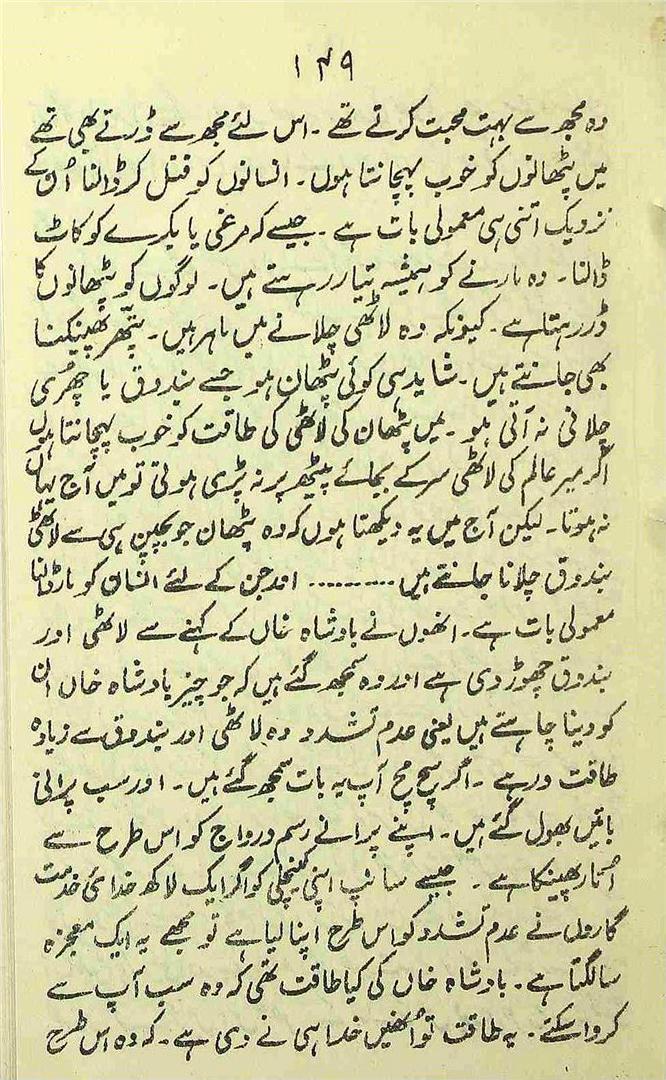 ۱۴۹
وہ مجھ سے بہت محبت کرتے تھے ۔ اس لئے مجھ سے ڈرتے بھی تھے
میں پٹھانوں کو خوب پہچانتا ہوں ۔ انسانوں کو قتل کر ڈالنا اُن کے
نزدیک اتنی ہی معمولی بات ہے ۔ جیسے کہ مرغی یا بکرے کو کاٹ
ڈالنا ۔ وہ مارنے کو ہمیشہ تیار رہتے ہیں ۔ لوگوں کو پٹھانوں کا
ڈر رہتا ہے ۔ کیونکہ وہ لاٹھی چلانے میں ماہر ہیں ۔ پتّھر پھینکنا
بھی جانتے ہیں ۔ شاید ہی کوئی پٹھان ہو جسے بندوق یا چھُری
چلانی نہ آتی ہو ۔ میں پٹھان کی لاٹھی کی طاقت کو خوب پہچانتا ہوں
اگر میر عالم کی لاٹھی سر کے بجائے پیٹھ پر نہ پڑی ہوتی تو میں آج یہاں
نہ ہوتا ۔ لیکن آج میں یہ دیکھتا ہوں کہ وہ پٹھان جو بچپن ہی سے لاٹھی
بندوق چلانا جانتے ہیں ۔۔۔۔۔۔۔۔۔۔ اور جن کے لئے انسان کو مار ڈالنا
معمولی بات ہے ۔ انھوں نے بادشاہ خاں کے کہنے سے لاٹھی اور
بندوق چھوڑ دی ہے اور وہ سمجھ گئے ہیں کہ جو چیز بادشاہ خاں ان
کو دینا چاہتے ہیں یعنی عدم تشدد وہ لاٹھی اور بندوق سے زیادہ
طاقت ور ہے ۔ اگر سچ مچ آپ یہ بات سمجھ گئے ہیں ۔ اور سب پرانی
باتیں بھول گئے ہیں ۔ اپنے پرانے رسم و رواج کو اس طرح سے
اُتار پھینکا ہے ۔ جیسے سانپ اپنی کینچلی کو اگر ایک لاکھ خدائی خدمت
گاروں نے عدم تشدد کو اس طرح اپنا لیا ہے تو مجھے یہ ایک معجزہ
سا لگتا ہے ۔ بادشاہ خاں کی کیا طاقت تھی کہ وہ سب آپ سے
کروا سکتے ۔ یہ طاقت تو اُنھیں خدا ہی نے دی ہے ۔ کہ وہ اس طرح